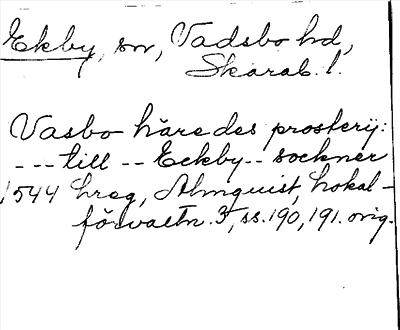 Ekby, sn, Vadsbo hd,
Skarab. l.
Vasbo häredes prosterij:
--- till -- Eckby -- sockner
1544 hreg, Almquist, Lokal-
förvaltn. 3, ss. 190, 191. orig.